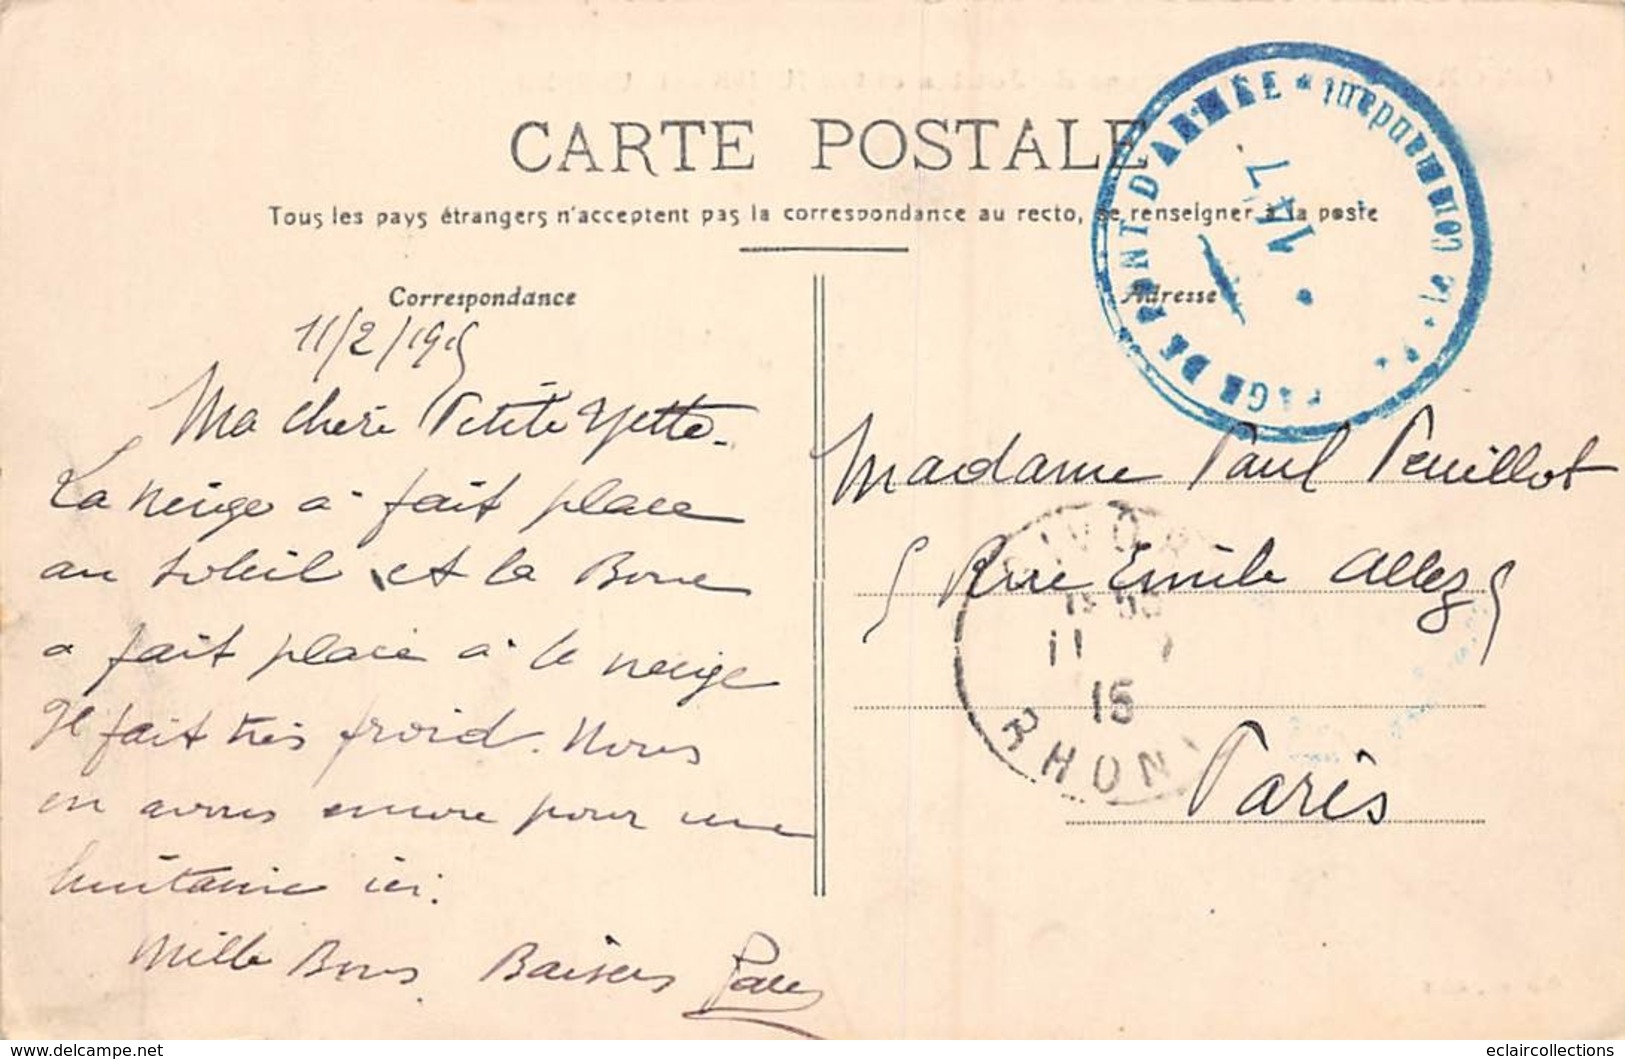 CARTE POSTALE
Tous les pays étrangers n'acceptent pas la correspondance au recto, se renseigner à la poste
Correspondance
11/2/1915
Ma chère Petite Yette.
La neige a fait place
au soleil et la Boue
a fait place à la neige
Il fait très froid. Nous
en avons encore pour une
huitaine ici.
Mille Bons Baisers
Adresse
Madame Paul Peuillot
5 Rue Emile Allez 5
Paris
PAGE DE PONT D'ARMÉE * Le Commandant
14/7
GIVORS
11
15
RHONE
eclaircollections